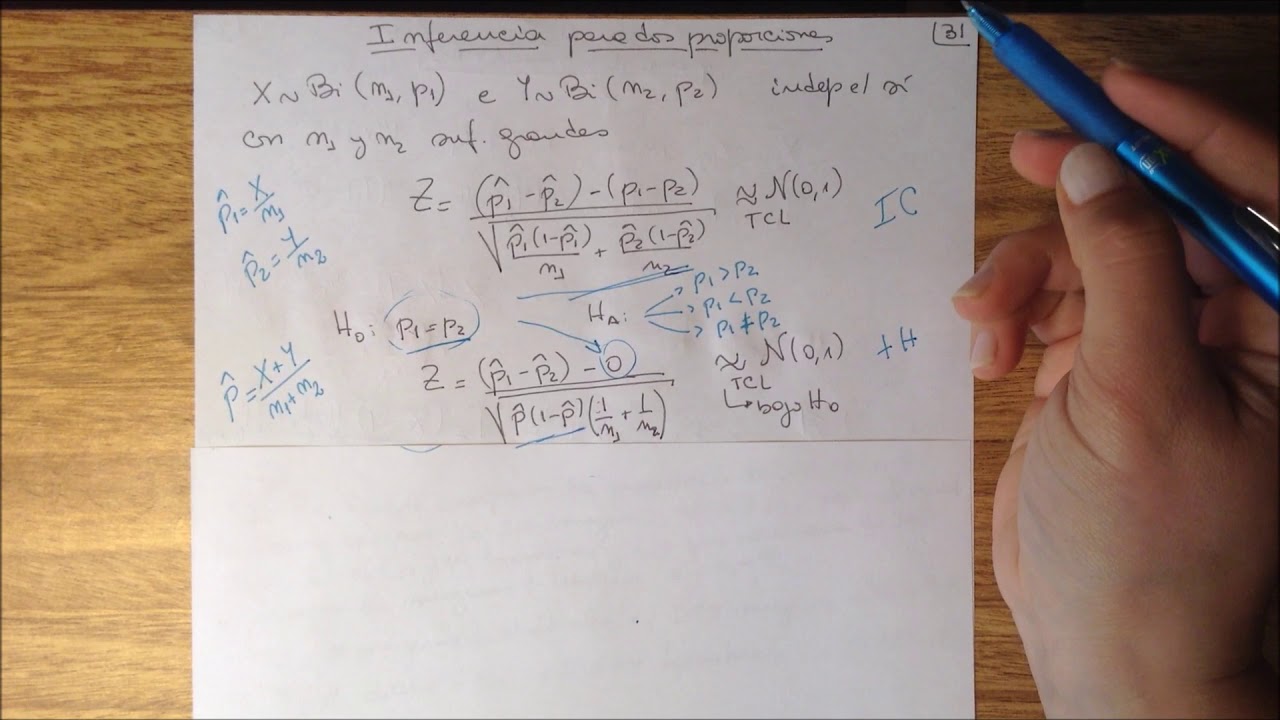 Inferencia para dos proporciones 31
X ~ Bi (n1, p1) e Y ~ Bi (n2, p2) indep el sí
con n1 y n2 suf. grandes
p̂1 = X/n1
p̂2 = Y/n2
Z = ((p̂1 - p̂2) - (p1 - p2)) / √(p̂1(1-p̂1)/n1 + p̂2(1-p̂2)/n2) ≈ N(0,1) IC
TCL
H0: p1 = p2 HA: p1 > p2
p1 < p2
p1 ≠ p2
p̂ = (X+Y)/(n1+n2)
Z = ((p̂1 - p̂2) - 0) / √(p̂(1-p̂)(1/n1 + 1/n2)) ≈ N(0,1) tH
TCL
↳ bajo H0